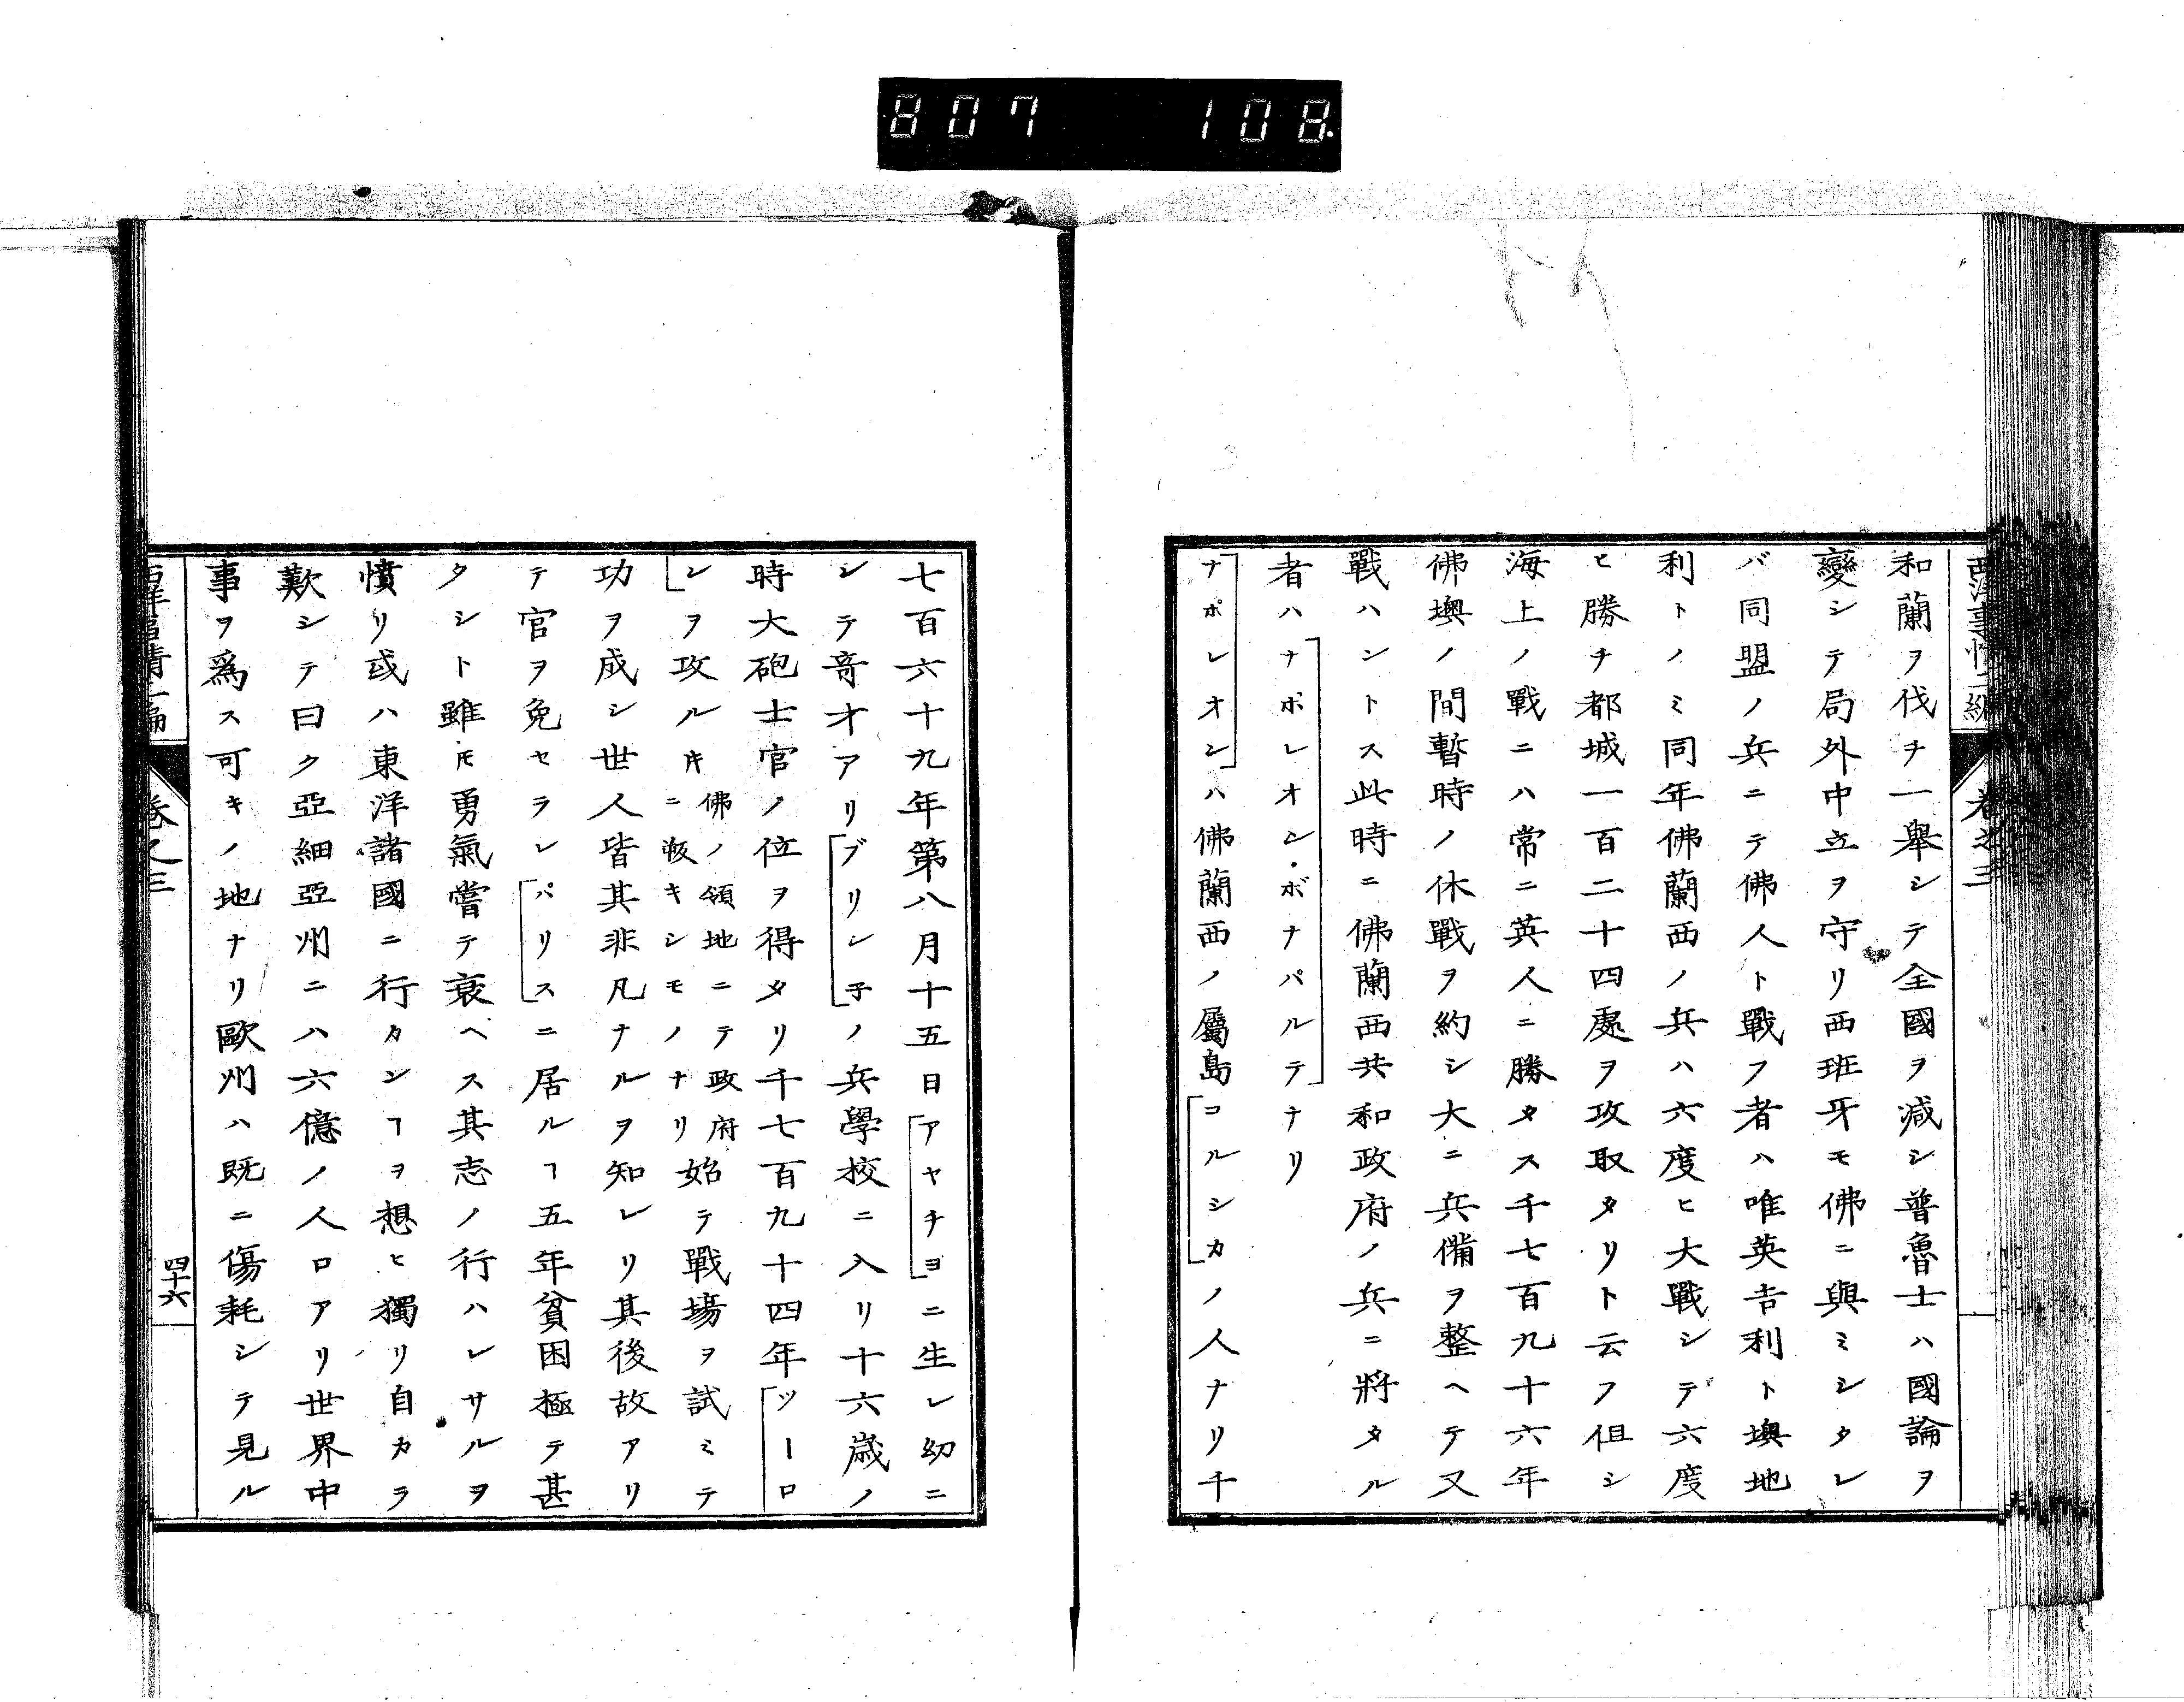 807 108.
西洋事情二編
卷之三
和蘭ヲ伐チ一擧シテ全國ヲ滅シ普魯士ハ國論ヲ
變シテ局外中立ヲ守リ西班牙モ佛ニ與ミシタレ
バ同盟ノ兵ニテ佛人ト戰フ者ハ唯英吉利ト墺地
利トノミ同年佛蘭西ノ兵ハ六度ヒ大戰シテ六度
ヒ勝チ都城一百二十四處ヲ攻取タリト云フ伹シ
海上ノ戰ニハ常ニ英人ニ勝タス千七百九十六年
佛墺ノ間暫時ノ休戰ヲ約シ大ニ兵備ヲ整ヘテ又
戰ハントス此時ニ佛蘭西共和政府ノ兵ニ將タル
者ハナポレオン・ボナパルテナリ
ナポレオンハ佛蘭西ノ屬島コルシカノ人ナリ千
七百六十九年第八月十五日アヤチヨニ生レ幼ニ
シテ竒才アリブリレ子ノ兵學校ニ入リ十六歳ノ
時大砲士官ノ位ヲ得タリ千七百九十四年ツーロ
ンヲ攻ルﾄｷ佛ノ領地ニテ政府ニ叛キシモノナリ始テ戰場ヲ試ミテ
功ヲ成シ世人皆其非凡ナルヲ知レリ其後故アリ
テ官ヲ免セラレパリスニ居ルヿ五年貧困極テ甚
タシト雖𪜈勇氣嘗テ衰ヘス其志ノ行ハレサルヲ
憤リ或ハ東洋諸國ニ行カンヿヲ想ヒ獨リ自カラ
歎シテ曰ク亞細亞州ニハ六億ノ人口アリ世界中
事ヲ爲ス可キノ地ナリ歐州ハ既ニ傷耗シテ見ル
西洋事情二編
卷之三
四十六